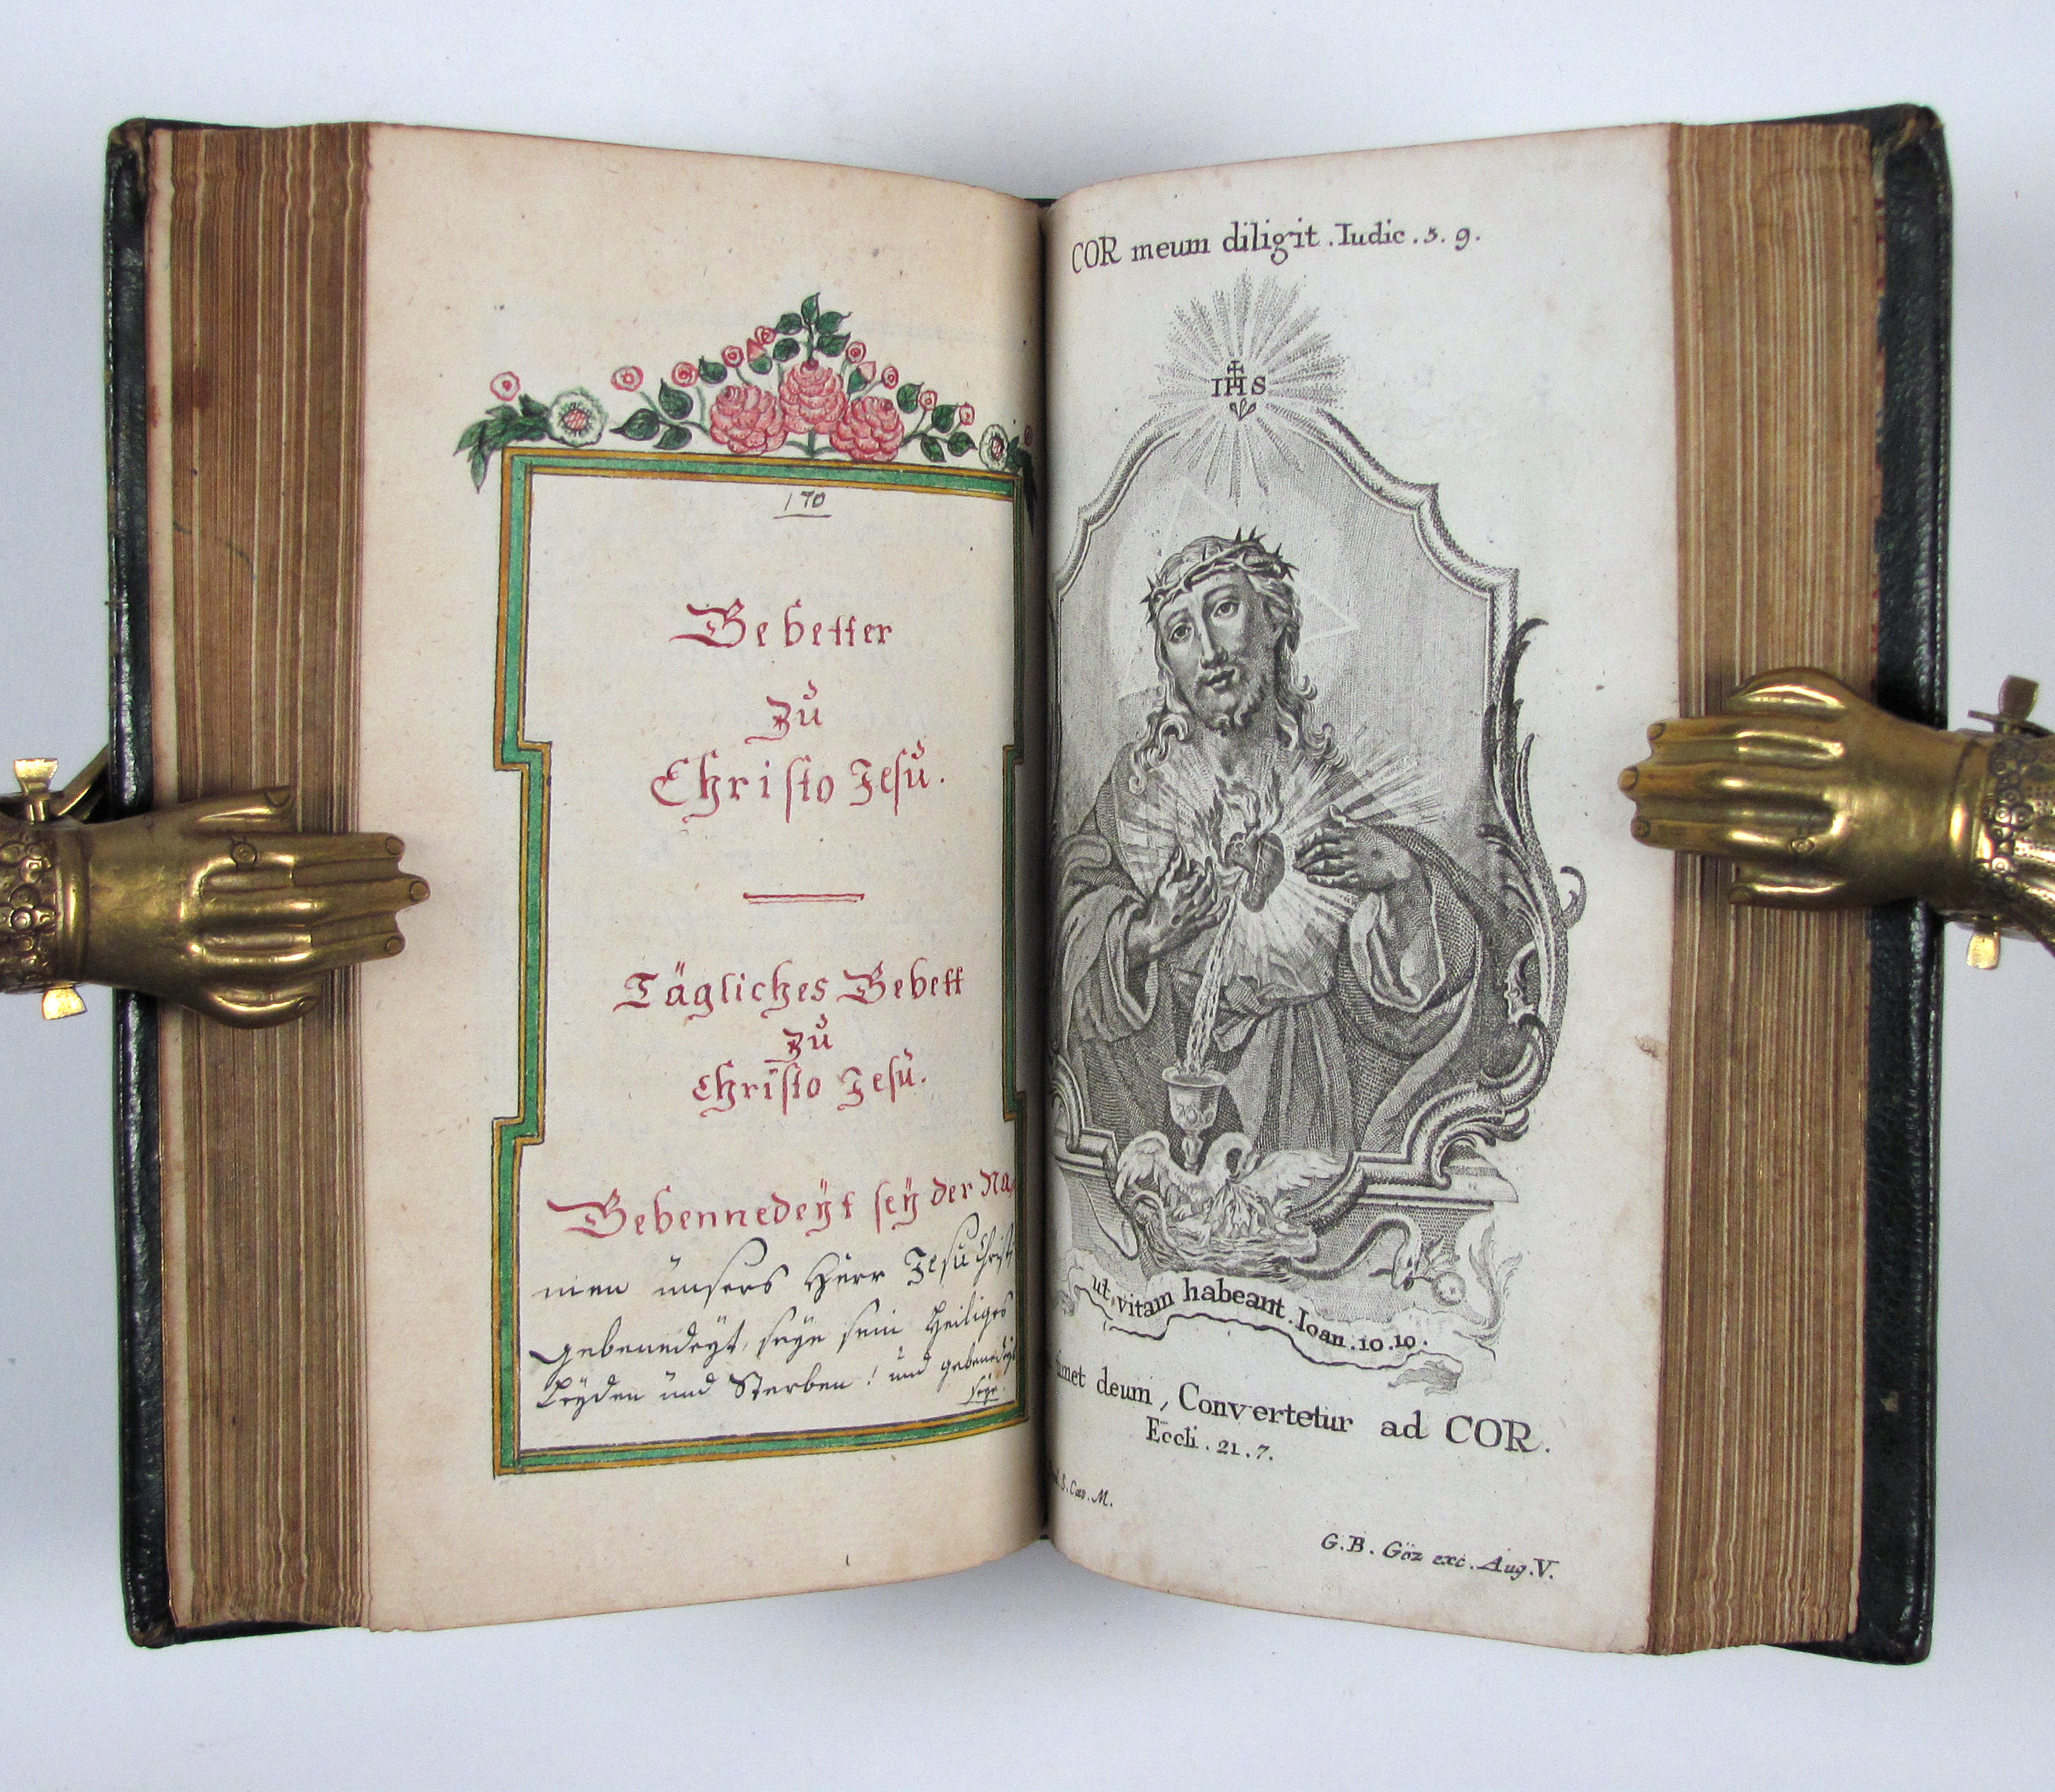 170
Gebetter
Zŭ
Christo Jesŭ.
Tägliches Gebett
Zŭ
Christo Jesŭ.
Gebennedeyt sey der Na,
men ŭnsers Herr Jesŭ Christi
gebenedeÿt, seye sein Heiliges
Leÿden ŭnd Sterben! ŭnd gebenedeÿt
seye.
COR meum diligit. Iudic. 5. 9.
IHS
ut vitam habeant. Ioan. 10. 10.
deum, Convertetur ad COR.
Eccli. 21. 7.
S. Cæs. M.
G. B. Göz exc. Aug. V.